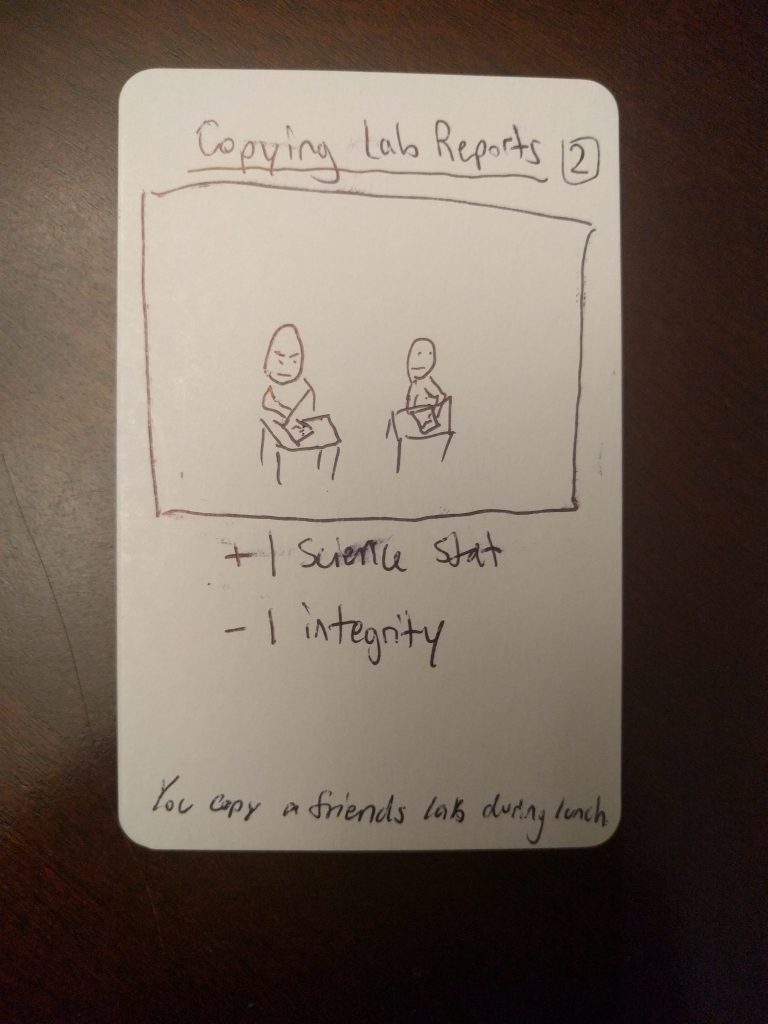 Copying Lab Reports 2
+1 Science stat
-1 integrity
You copy a friends lab during lunch